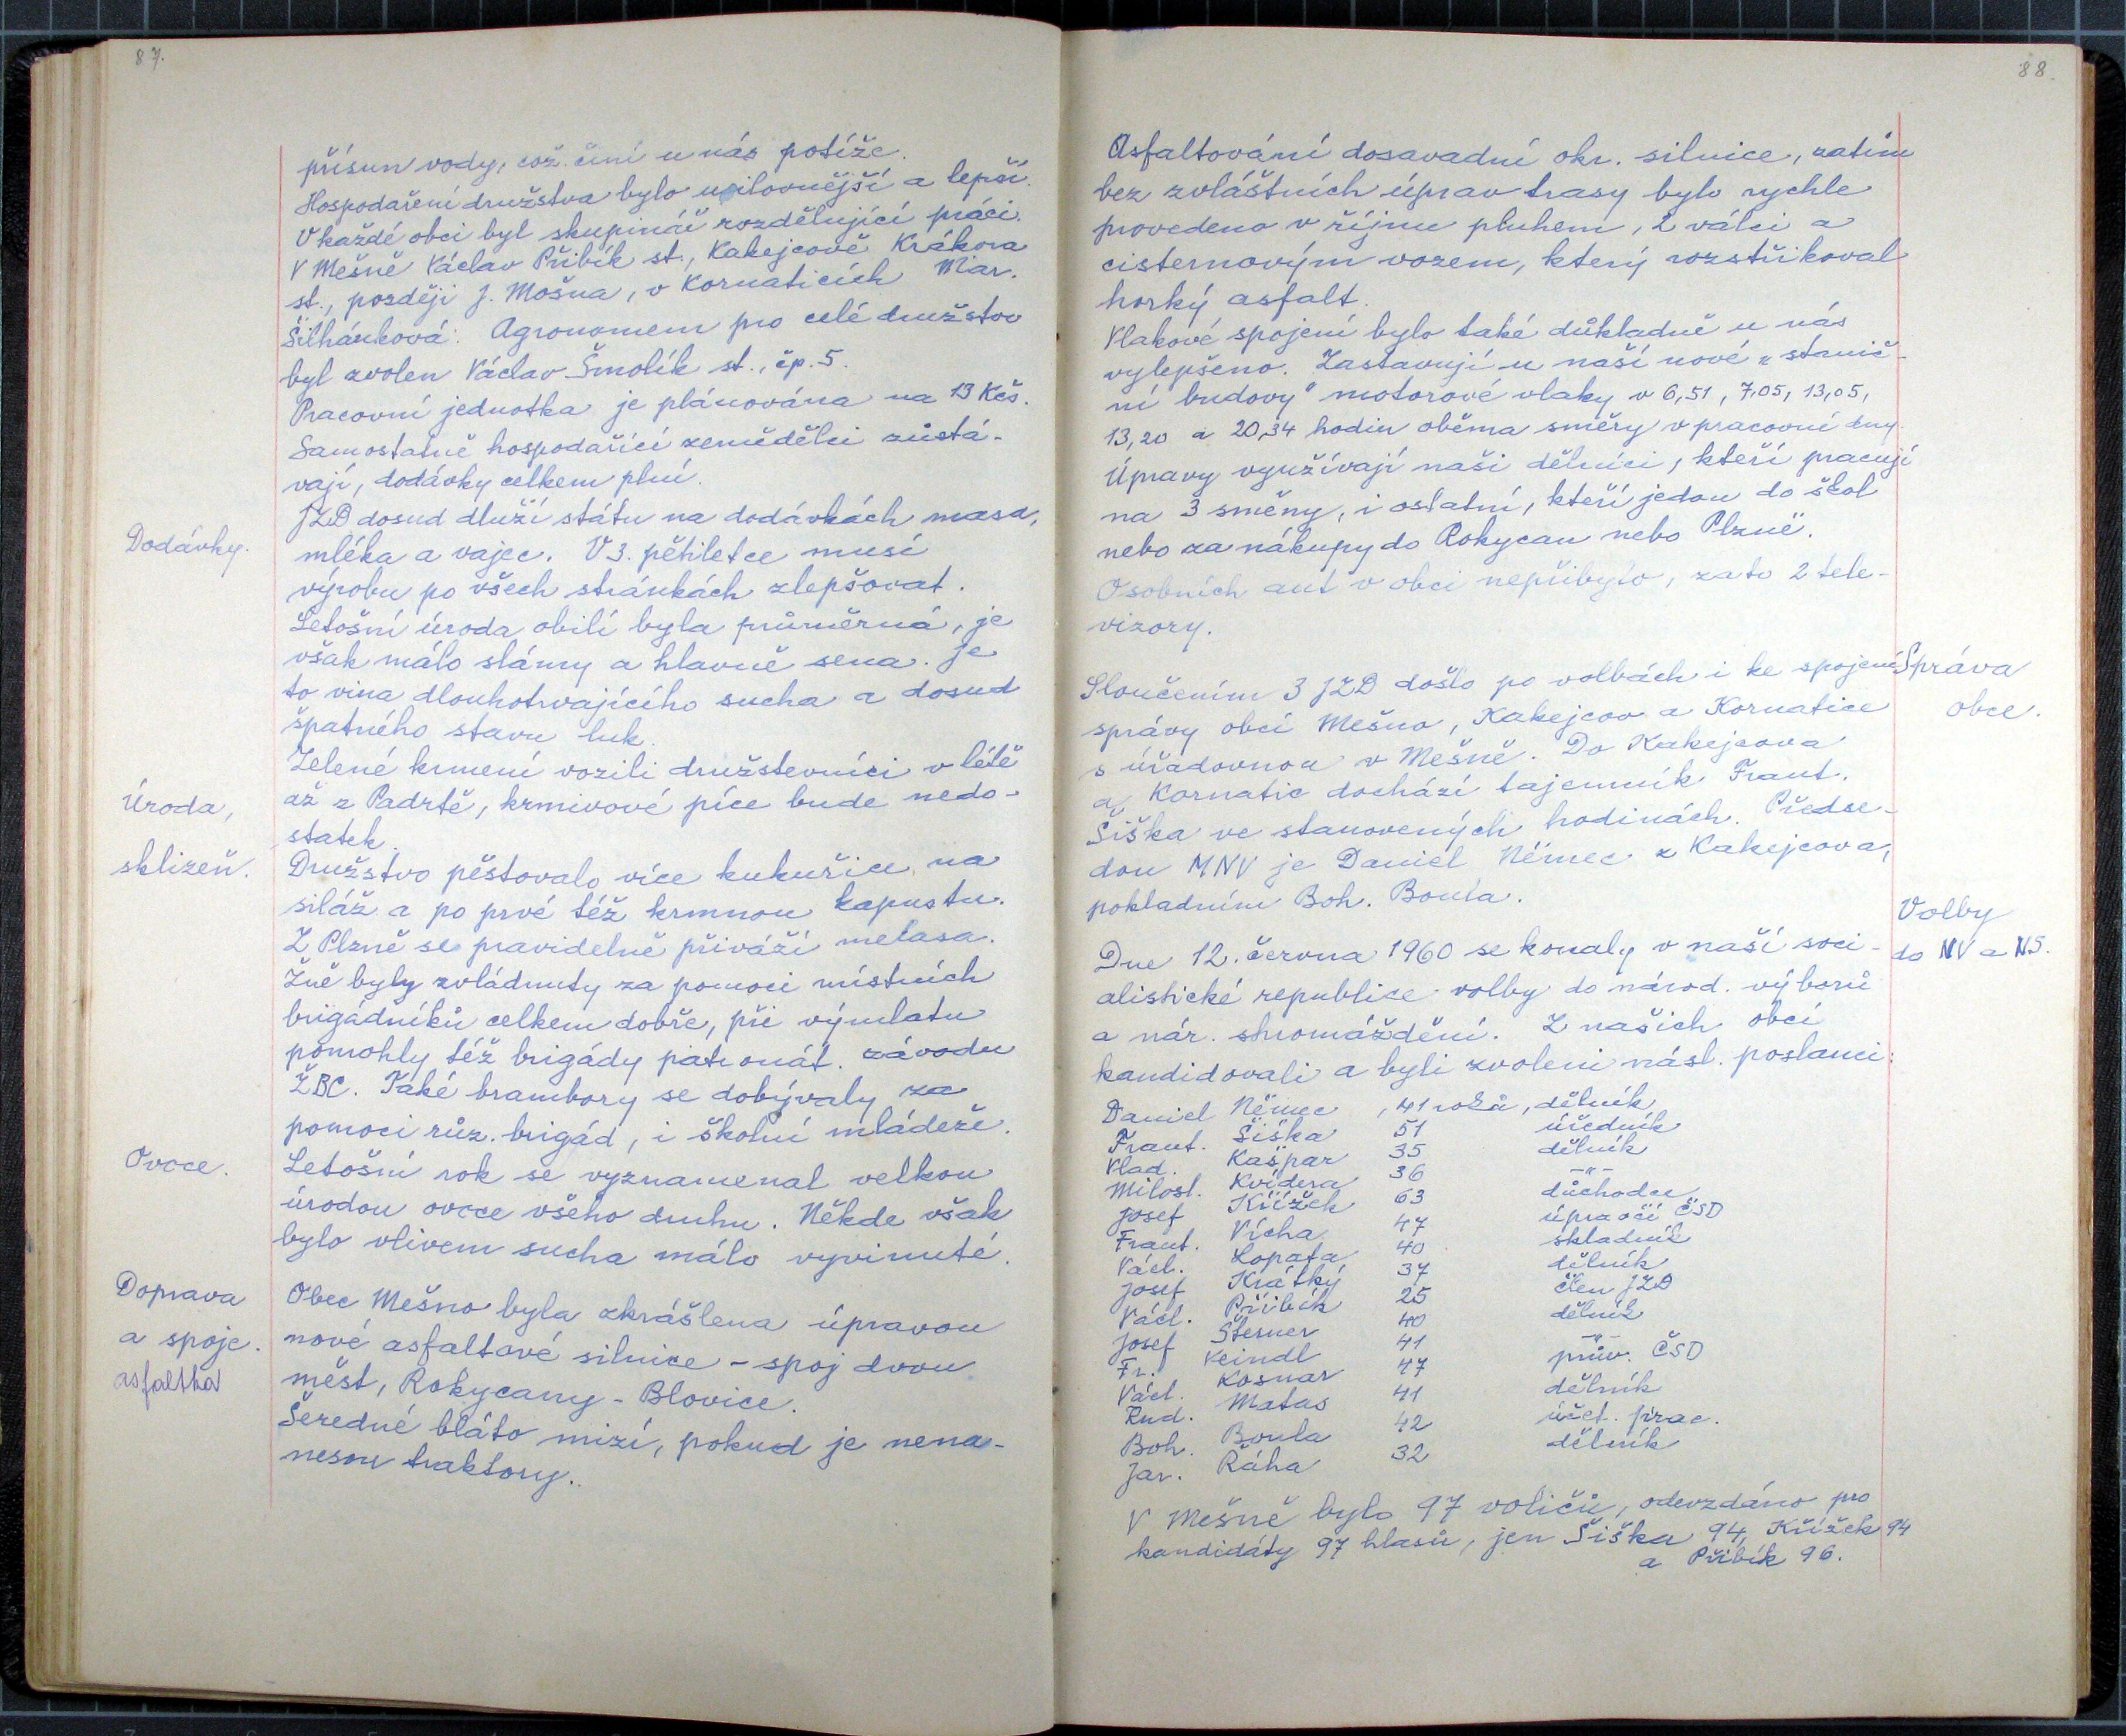 87.
přísun vody, což činí u nás potíže.
Hospodaření družstva bylo usilovnější a lepší.
V každé obci byl skupinář rozdělující práci.
V Mešně Václav Přibík st., Kakejcově Krákora
st., později J. Mošna, v Kornaticích Mar.
Šilhánková. Agronomem pro celé družstvo
byl zvolen Václav Šmolík st., čp. 5.
Pracovní jednotka je plánována na 13 Kčs.
Samostatně hospodařící zemědělci zůstá-
vají, dodávky celkem plní.
Dodávky.
JZD dosud dluží státu na dodávkách masa,
mléka a vajec. V 3. pětiletce musí
výrobu po všech stránkách zlepšovat.
Letošní úroda obilí byla průměrná, je
však málo slámy a hlavně sena. Je
to vina dlouhotrvajícího sucha a dosud
špatného stavu luk.
Úroda,
sklizeň.
Zelené krmení vozili družstevníci v létě
až z Padrtě, krmivové píce bude nedo-
statek.
Družstvo pěstovalo více kukuřice na
siláž a po prvé též krmnou kapustu.
Z Plzně se pravidelně přiváží melasa.
Žně byly zvládnuty za pomoci místních
brigádníků celkem dobře, při výmlatu
pomohly též brigády patronát. závodu
ŽBC. Také brambory se dobývaly za
pomoci růz. brigád, i školní mládeže.
Ovoce.
Letošní rok se vyznamenal velkou
úrodou ovoce všeho druhu. Někde však
bylo vlivem sucha málo vyvinuté.
Doprava
a spoje.
asfaltka
Obec Mešno byla zkrášlena úpravou
nové asfaltové silnice - spoj dvou
měst, Rokycany - Blovice.
Šeredné bláto mizí, pokud je nena-
nesou traktory.
88.
Asfaltování dosavadní okr. silnice, zatím
bez zvláštních úprav trasy bylo rychle
provedeno v říjnu pluhem, 2 válci a
cisternovým vozem, který rozstřikoval
horký asfalt.
Vlakové spojení bylo také důkladně u nás
vylepšeno. Zastavují u naší nové „stanič-
ní budovy" motorové vlaky v 6,51, 7,05, 13,05,
13,20 a 20,34 hodin oběma směry v pracovní dny.
Úpravy využívají naši dělníci, kteří pracují
na 3 směny, i ostatní, kteří jedou do škol
nebo za nákupy do Rokycan nebo Plzně.
Osobních aut v obci nepřibylo, zato 2 tele-
vizory.
Správa
obce.
Sloučením 3 JZD došlo po volbách i ke spojení
správy obcí Mešno, Kakejcov a Kornatice
s úřadovnou v Mešně. Do Kakejcova
a Kornatic dochází tajemník Frant.
Šiška ve stanovených hodinách. Předse-
dou MNV je Daniel Němec z Kakejcova,
pokladním Boh. Boula.
Volby
do NV a NS.
Dne 12. června 1960 se konaly v naší soci-
alistické republice volby do národ. výborů
a nár. shromáždění. Z našich obcí
kandidovali a byli zvoleni násl. poslanci:
Daniel Němec, 41 roků, dělník
Frant. Šiška 51 úředník
Vlad. Kašpar 35 dělník
Milosl. Kvídera 36 -"-
Josef Křížek 63 důchodce
Frant. Vícha 47 úpravčí ČSD
Václ. Lopata 40 skladník
Josef Krátký 37 dělník
Václ. Přibík 25 člen JZD
Josef Štesner 40 dělník
Fr. Keindl 41 -"-
Václ. Kosnar 47 prův. ČSD
Rud. Matas 41 dělník
Boh. Boula 42 účet. prac.
Jar. Řáha 32 dělník
V Mešně bylo 97 voličů, odevzdáno pro
kandidáty 97 hlasů, jen Šiška 94, Křížek 94
a Přibík 96.